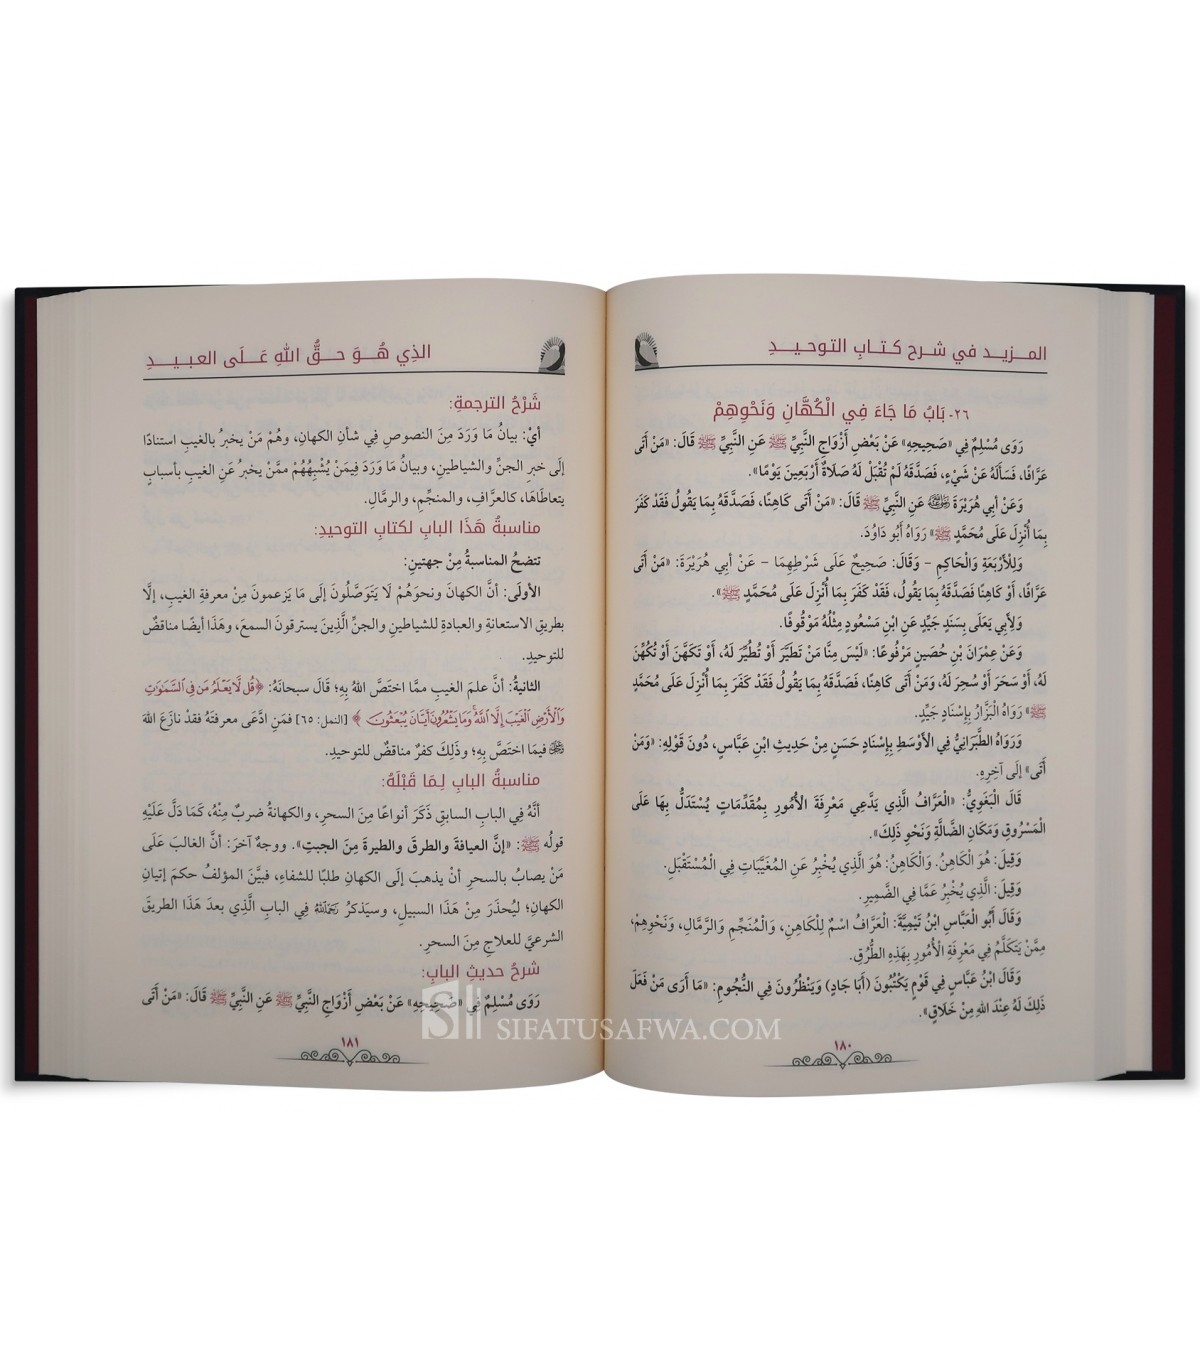 المزيد في شرح كتاب التوحيد
٢٦- بَابُ مَا جَاءَ فِي الْكُهَّانِ وَنَحْوِهِمْ
رَوَى مُسْلِمٌ فِي «صَحِيحِهِ» عَنْ بَعْضِ أَزْوَاجِ النَّبِيِّ ﷺ عَنِ النَّبِيِّ ﷺ قَالَ: «مَنْ أَتَى
عَرَّافًا، فَسَأَلَهُ عَنْ شَيْءٍ، فَصَدَّقَهُ لَمْ تُقْبَلْ لَهُ صَلَاةٌ أَرْبَعِينَ يَوْمًا».
وَعَنْ أَبِي هُرَيْرَةَ ﵁ عَنِ النَّبِيِّ ﷺ قَالَ: «مَنْ أَتَى كَاهِنًا، فَصَدَّقَهُ بِمَا يَقُولُ فَقَدْ كَفَرَ
بِمَا أُنْزِلَ عَلَى مُحَمَّدٍ ﷺ» رَوَاهُ أَبُو دَاوُدَ.
وَلِلْأَرْبَعَةِ وَالْحَاكِمِ – وَقَالَ: صَحِيحٌ عَلَى شَرْطِهِمَا – عَنْ أَبِي هُرَيْرَةَ: «مَنْ أَتَى
عَرَّافًا، أَوْ كَاهِنًا فَصَدَّقَهُ بِمَا يَقُولُ، فَقَدْ كَفَرَ بِمَا أُنْزِلَ عَلَى مُحَمَّدٍ ﷺ».
وَلِأَبِي يَعْلَى بِسَنَدٍ جَيِّدٍ عَنِ ابْنِ مَسْعُودٍ مِثْلُهُ مَوْقُوفًا.
وَعَنْ عِمْرَانَ بْنِ حُصَيْنٍ مَرْفُوعًا: «لَيْسَ مِنَّا مَنْ تَطَيَّرَ أَوْ تُطُيِّرَ لَهُ، أَوْ تَكَهَّنَ أَوْ تُكُهِّنَ
لَهُ، أَوْ سَحَرَ أَوْ سُحِرَ لَهُ، وَمَنْ أَتَى كَاهِنًا، فَصَدَّقَهُ بِمَا يَقُولُ فَقَدْ كَفَرَ بِمَا أُنْزِلَ عَلَى مُحَمَّدٍ
ﷺ» رَوَاهُ الْبَزَّارُ بِإِسْنَادٍ جَيِّدٍ.
وَرَوَاهُ الطَّبَرَانِيُّ فِي الْأَوْسَطِ بِإِسْنَادٍ حَسَنٍ مِنْ حَدِيثِ ابْنِ عَبَّاسٍ، دُونَ قَوْلِهِ: «وَمَنْ
أَتَى» إِلَى آخِرِهِ.
قَالَ الْبَغَوِيُّ: «الْعَرَّافُ الَّذِي يَدَّعِي مَعْرِفَةَ الْأُمُورِ بِمُقَدِّمَاتٍ يُسْتَدَلُّ بِهَا عَلَى
الْمَسْرُوقِ وَمَكَانِ الضَّالَّةِ وَنَحْوِ ذَلِكَ».
وَقِيلَ: هُوَ الْكَاهِنُ. وَالْكَاهِنُ: هُوَ الَّذِي يُخْبِرُ عَنِ الْمُغَيَّبَاتِ فِي الْمُسْتَقْبَلِ.
وَقِيلَ: الَّذِي يُخْبِرُ عَمَّا فِي الضَّمِيرِ.
وَقَالَ أَبُو الْعَبَّاسِ ابْنُ تَيْمِيَّةَ: الْعَرَّافُ اسْمٌ لِلْكَاهِنِ، وَالْمُنَجِّمِ وَالرَّمَّالِ، وَنَحْوِهِمْ،
مِمَّنْ يَتَكَلَّمُ فِي مَعْرِفَةِ الْأُمُورِ بِهَذِهِ الطُّرُقِ.
وَقَالَ ابْنُ عَبَّاسٍ فِي قَوْمٍ يَكْتُبُونَ (أَبَا جَادٍ) وَيَنْظُرُونَ فِي النُّجُومِ: «مَا أَرَى مَنْ فَعَلَ
ذَلِكَ لَهُ عِنْدَ اللهِ مِنْ خَلَاقٍ».
١٨٠
الذِي هُوَ حقُّ اللهِ عَلَى العبيدِ
شَرْحُ الترجمةِ:
أيْ: بيانُ مَا وَرَدَ مِنَ النصوصِ فِي شأنِ الكهانِ، وهُمْ مَنْ يخبرُ بالغيبِ استنادًا
إلَى خبرِ الجنِّ والشياطينِ، وبيانُ مَا وَرَدَ فيمَنْ يُشْبِهُهُمْ ممَّنْ يخبرُ عَنِ الغيبِ بأسبابٍ
يتعاطَاهَا، كالعرَّافِ، والمنجِّمِ، والرمَّالِ.
مناسبةُ هَذَا البابِ لكتابِ التوحيدِ:
تتضحُ المناسبةُ مِنْ جهتينِ:
الأولَى: أنَّ الكهانَ ونحوَهُمْ لَا يَتَوَصَّلُونَ إلَى مَا يَزعمونَ مِنْ معرفةِ الغيبِ، إلَّا
بطريقِ الاستعانةِ والعبادةِ للشياطينِ والجنِّ الَّذِينَ يسترقونَ السمعَ، وهَذَا أيضًا مناقضٌ
للتوحيدِ.
الثانيةُ: أنَّ علمَ الغيبِ ممَّا اختصَّ اللهُ بِهِ؛ قَالَ سبحانَهُ: ﴿قُل لَّا يَعْلَمُ مَن فِي السَّمَٰوَٰتِ
وَالْأَرْضِ الْغَيْبَ إِلَّا اللَّهُ ۚ وَمَا يَشْعُرُونَ أَيَّانَ يُبْعَثُونَ﴾ [النمل: ٦٥] فمَنِ ادَّعَى معرفتَهُ فقدْ نازَعَ اللهَ
ﷻ فيمَا اختَصَّ بِهِ؛ وذَلِكَ كفرٌ مناقضٌ للتوحيدِ.
مناسبةُ البابِ لِمَا قَبْلَهُ:
أنَّهُ فِي البابِ السابقِ ذَكَرَ أنواعًا مِنَ السحرِ، والكهانةُ ضربٌ مِنْهُ، كَمَا دَلَّ عَلَيْهِ
قولُه ﷺ: «إنَّ العيافةَ والطرقَ والطيرةَ مِنَ الجبتِ». ووجهٌ آخرَ: أنَّ الغالبَ عَلَى
مَنْ يصابُ بالسحرِ أنْ يذهبَ إلَى الكهانِ طلبًا للشفاءِ، فبيَّنَ المؤلفُ حكمَ إتيانِ
الكهانِ؛ ليُحذَرَ مِنْ هَذَا السبيلِ، وسيَذكرُ رَحِمَهُ اللَّهُ فِي البابِ الَّذِي بعدَ هَذَا الطريقَ
الشرعيَّ للعلاجِ مِنَ السحرِ.
شرحُ حديثِ البابِ:
رَوَى مُسْلِمٌ فِي «صَحِيحِهِ» عَنْ بَعْضِ أَزْوَاجِ النَّبِيِّ ﷺ عَنِ النَّبِيِّ ﷺ قَالَ: «مَنْ أَتَى
١٨١
SIFATUSAFWA.COM